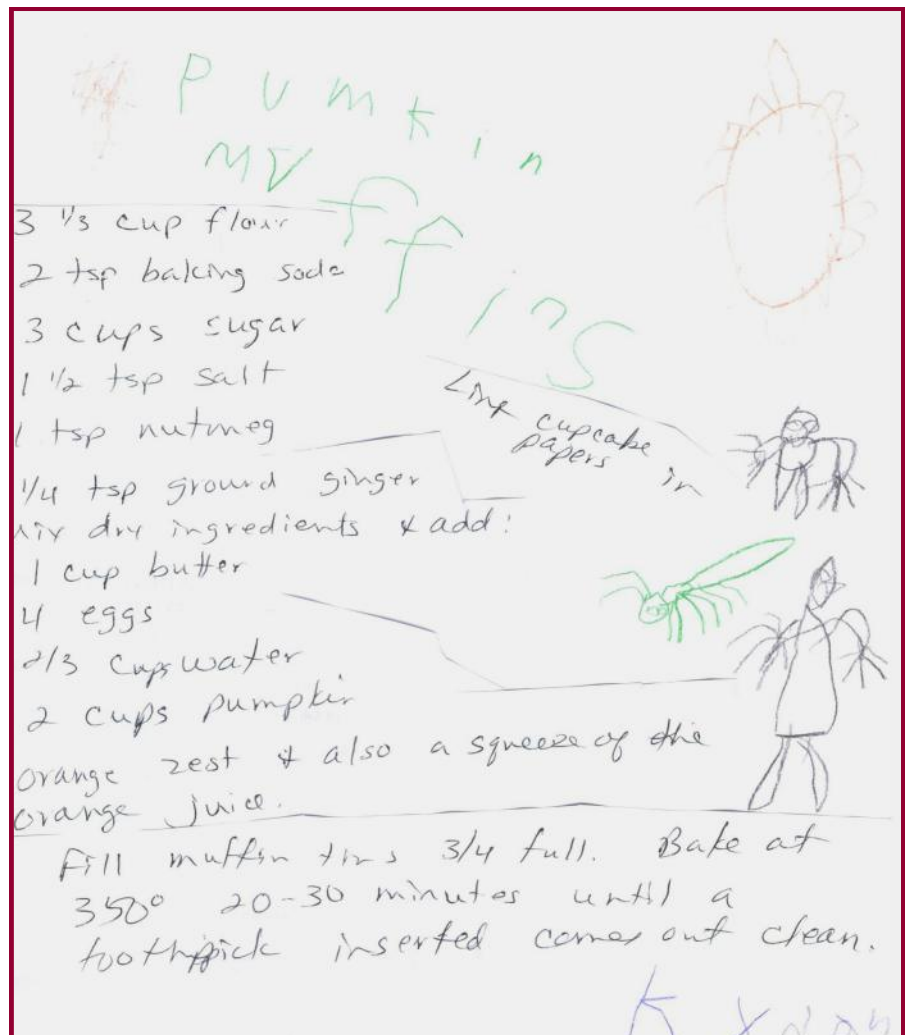 Pumkin
MUffinS
3 1/3 cup flour
2 tsp baking soda
3 cups sugar
1 1/2 tsp salt
1 tsp nutmeg
1/4 tsp ground ginger
Mix dry ingredients & add:
1 cup butter
4 eggs
2/3 cups water
2 cups pumpkin
orange zest & also a squeeze of the
orange juice.
Line cupcake
papers in
Fill muffin tins 3/4 full. Bake at
350° 20-30 minutes until a
toothpick inserted comes out clean.